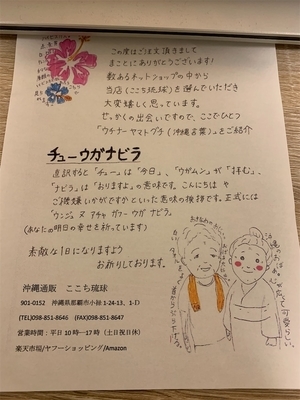 この度はご注文頂きまして
まことにありがとうございます!
数あるネットショップの中から
当店(ここち琉球)を選んでいただき
大変嬉しく思っています。
せっかくの出会いですので、ここでひとつ
「ウチナーヤマトグチ(沖縄言葉)」をご紹介
チューウガナビラ
直訳すると「チュー」は「今日」、「ウガムン」が「拝む」、
「ナビラ」は「おりますよ」の意味です。こんにちは や
ご機嫌いかがですかといった意味の挨拶です。正式には
「ウンジュ ヌ アチャ ガフー ウガ ナビラ」
(あなたの明日の幸せを祈っています)
素敵な1日になりますよう
お祈りしております。
沖縄通販 ここち琉球
901-0152 沖縄県那覇市小禄1-24-13、1-D
(TEL)098-851-8646 (FAX)098-851-8647
営業時間:平日10時―17時(土日祝日休)
楽天市場/ヤフーショッピング/Amazon
可愛らしい。